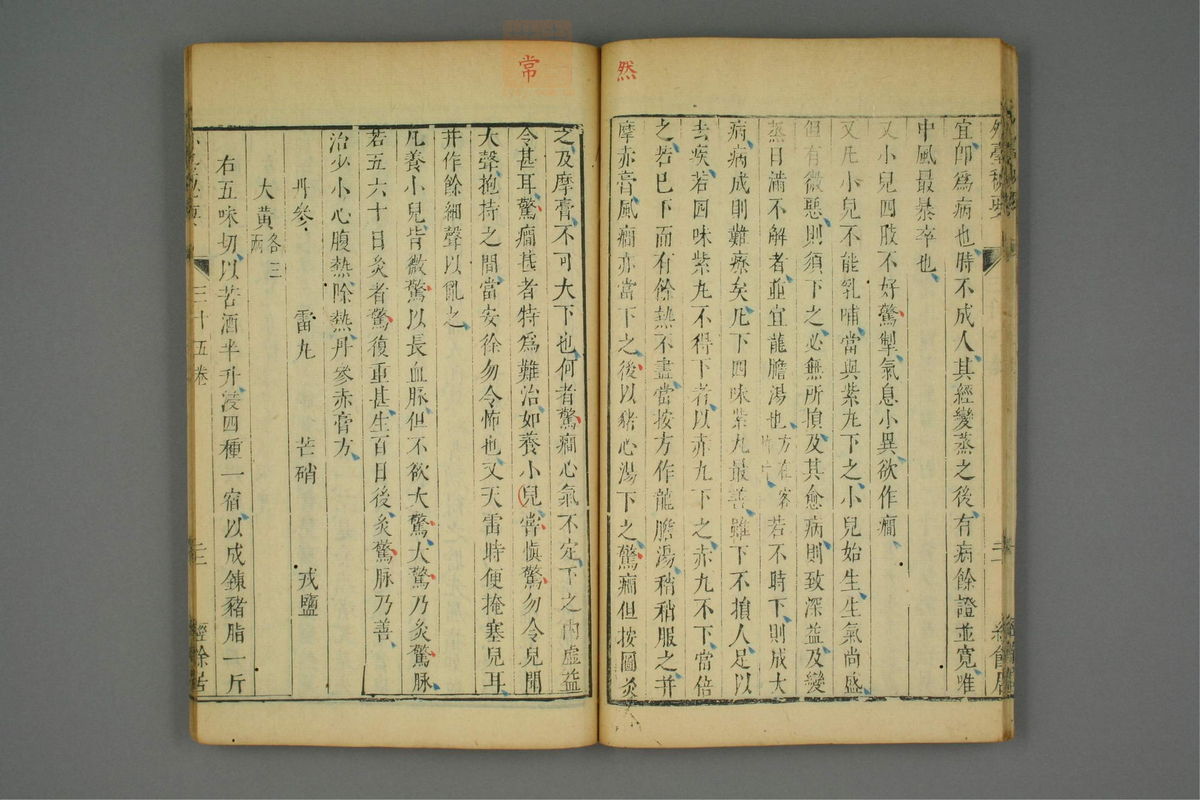 然
外臺秘要
宜卽爲病也時不成人其經變蒸之後有病餘證並寬唯
中風最暴卒也
又小兒四肢不好驚掣氣息小異欲作癎
又凡小兒不能乳哺當與紫丸下之小兒始生生氣尚盛
但有微惡則須下之必無所損及其愈病則致深益及變
蒸日滿不解者並宜龍膽湯也方在若不時下則成大
病病成則難療矣凡下四味紫丸最善雖下不損人足以
去疾若四味紫丸不得下者以赤丸下之赤丸不下當倍
之若已下而有餘熱不盡當按方作龍膽湯稍稍服之并
摩赤膏風癎亦當下之後以豬心湯下之驚癎但按圖灸
常
之及摩膏不可大下也何者驚癎心氣不定下之內虛益
令甚耳驚癎甚者特爲難治如養小兒當愼驚勿令兒聞
大聲抱持之間當安徐勿令怖也又天雷時便掩塞兒耳
并作餘細聲以亂之
凡養小兒皆微驚以長血脈但不欲大驚大驚乃灸驚脈
若五六十日灸者驚復重甚生百日後灸驚脈乃善
治少小心腹熱除熱丹參赤膏方
丹參 雷丸 芒硝 戎鹽
大黃各三兩
右五味切以苦酒半升浸四種一宿以成鍊豬脂一斤
三十五卷 二 經餘居